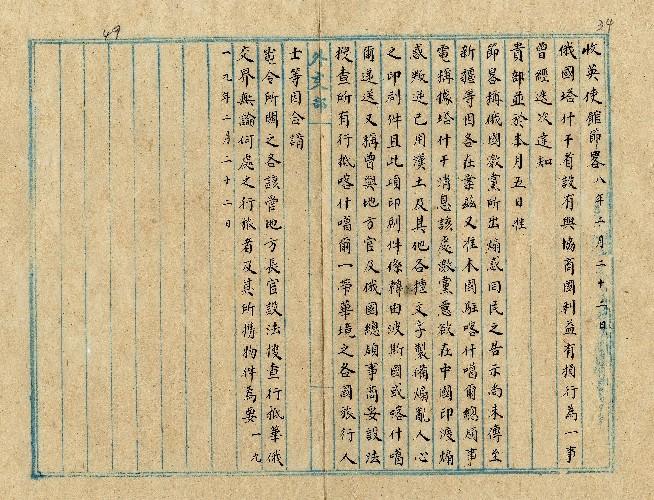 34
49
收英使館節畧 八年二月二十六日
俄國塔什干省設有與協商國利益有損行為一事
曾經迭次達知
貴部並於本月五日准
節畧稱俄國激黨所出煽惑回民之告示尚未傳至
新疆等因各在案茲又准本國駐喀什噶爾總領事
電稱據塔什干消息該處激黨意欲在中國印度煽
惑叛逆已用漢土及其他各種文字製備煽亂人心
之印刷件且此項印刷件條轉由波斯國或喀什噶
爾遞送又稱曾與地方官及俄國總領事商妥設法
搜查所有行抵喀什噶爾一帶華境之各國旅行人
外交部
士等因合請
電令所關之各該管地方長官設法搜查行抵華俄
交界無論何處之行旅者及其所攜物件為要 一九
一九年二月二十二日